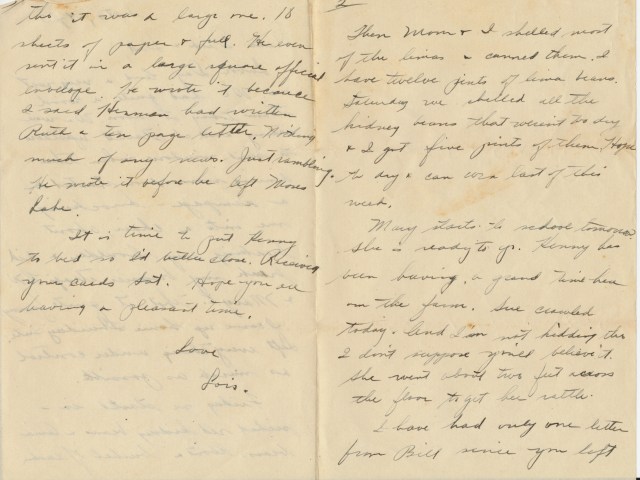 2
Then Mom & I shelled most
of the limas & canned them. I
have twelve pints of lima beans.
Saturday we shelled all the
kidney beans that weren't to dry
& I got five pints of them. Hope
to dry & can corn last of this
week.
Mary starts to school tomorrow
She is ready to go. Kenny has
been having a grand time here
on the farm. She crawled
today. And I'm not kidding tho
I don't suppose you'll believe it.
She went about two feet across
the floor to get her rattle.
I have had only one letter
from Bill since you left
tho it was a large one. 18
sheets of paper & full. He even
sent it in a large square official
envelope. He wrote it because
I said Herman had written
Ruth a ten page letter. Nothing
much of any news. Just rambling.
He wrote it before he left Moses
Lake.
It is time to put Kenny
to bed so I'd better close. Received
your cards Sat. Hope you are
having a pleasant time.
Love
Lois.